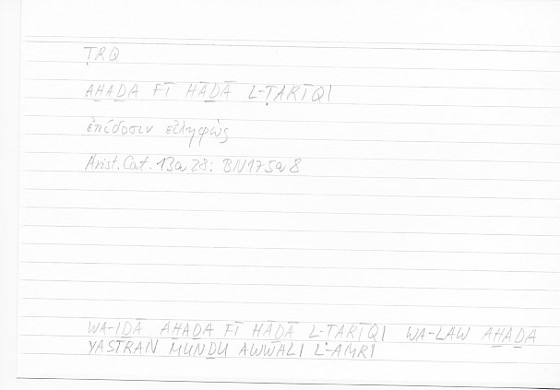 ṬRQ
AH̱AḎA FĪ HĀḎĀ L-ṬARĪQI
ἐπίδοσιν εἰληφὼς
Arist. Cat. 13a28: BN175a8
WA-IḎĀ AH̱AḎA FĪ HĀḎĀ L-ṬARĪQI WA-LAW AH̱AḎA
YASĪRAN MUNḎU AWWALI L-AMRI